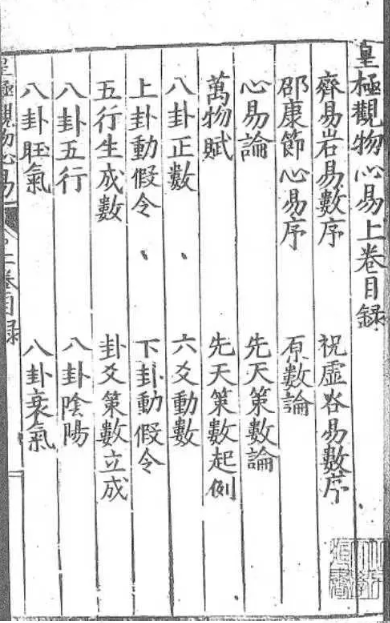 皇極觀物心易上卷目録
齊易岩易數序 祝虛谷易數序
邵康節心易序 原數論
心易論 先天策數論
萬物賦 先天策數起例
八卦正數 六爻動數
上卦動假令 下卦動假令
五行生成數 卦爻策數立成
八卦五行 八卦陰陽
八卦旺氣 八卦衰氣
皇極觀物心易 上卷目録